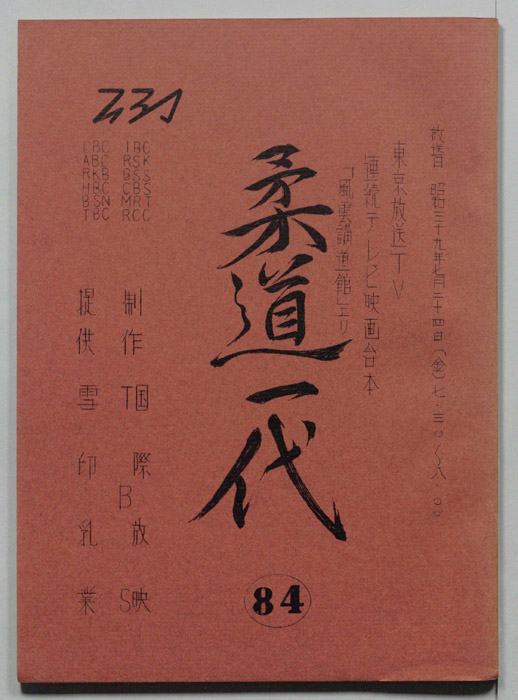 放送 昭和三十九年七月二十四日(金)七・三〇〜八・〇〇
東京放送TV
連続テレビ映画台本
「風雲講道館」より
柔道一代
84
CBC IBC
ABC RSK
RKB
HBC CBS
BSN MRT
TBC RCC
制作 国際放映
TBS
提供 雪印乳業